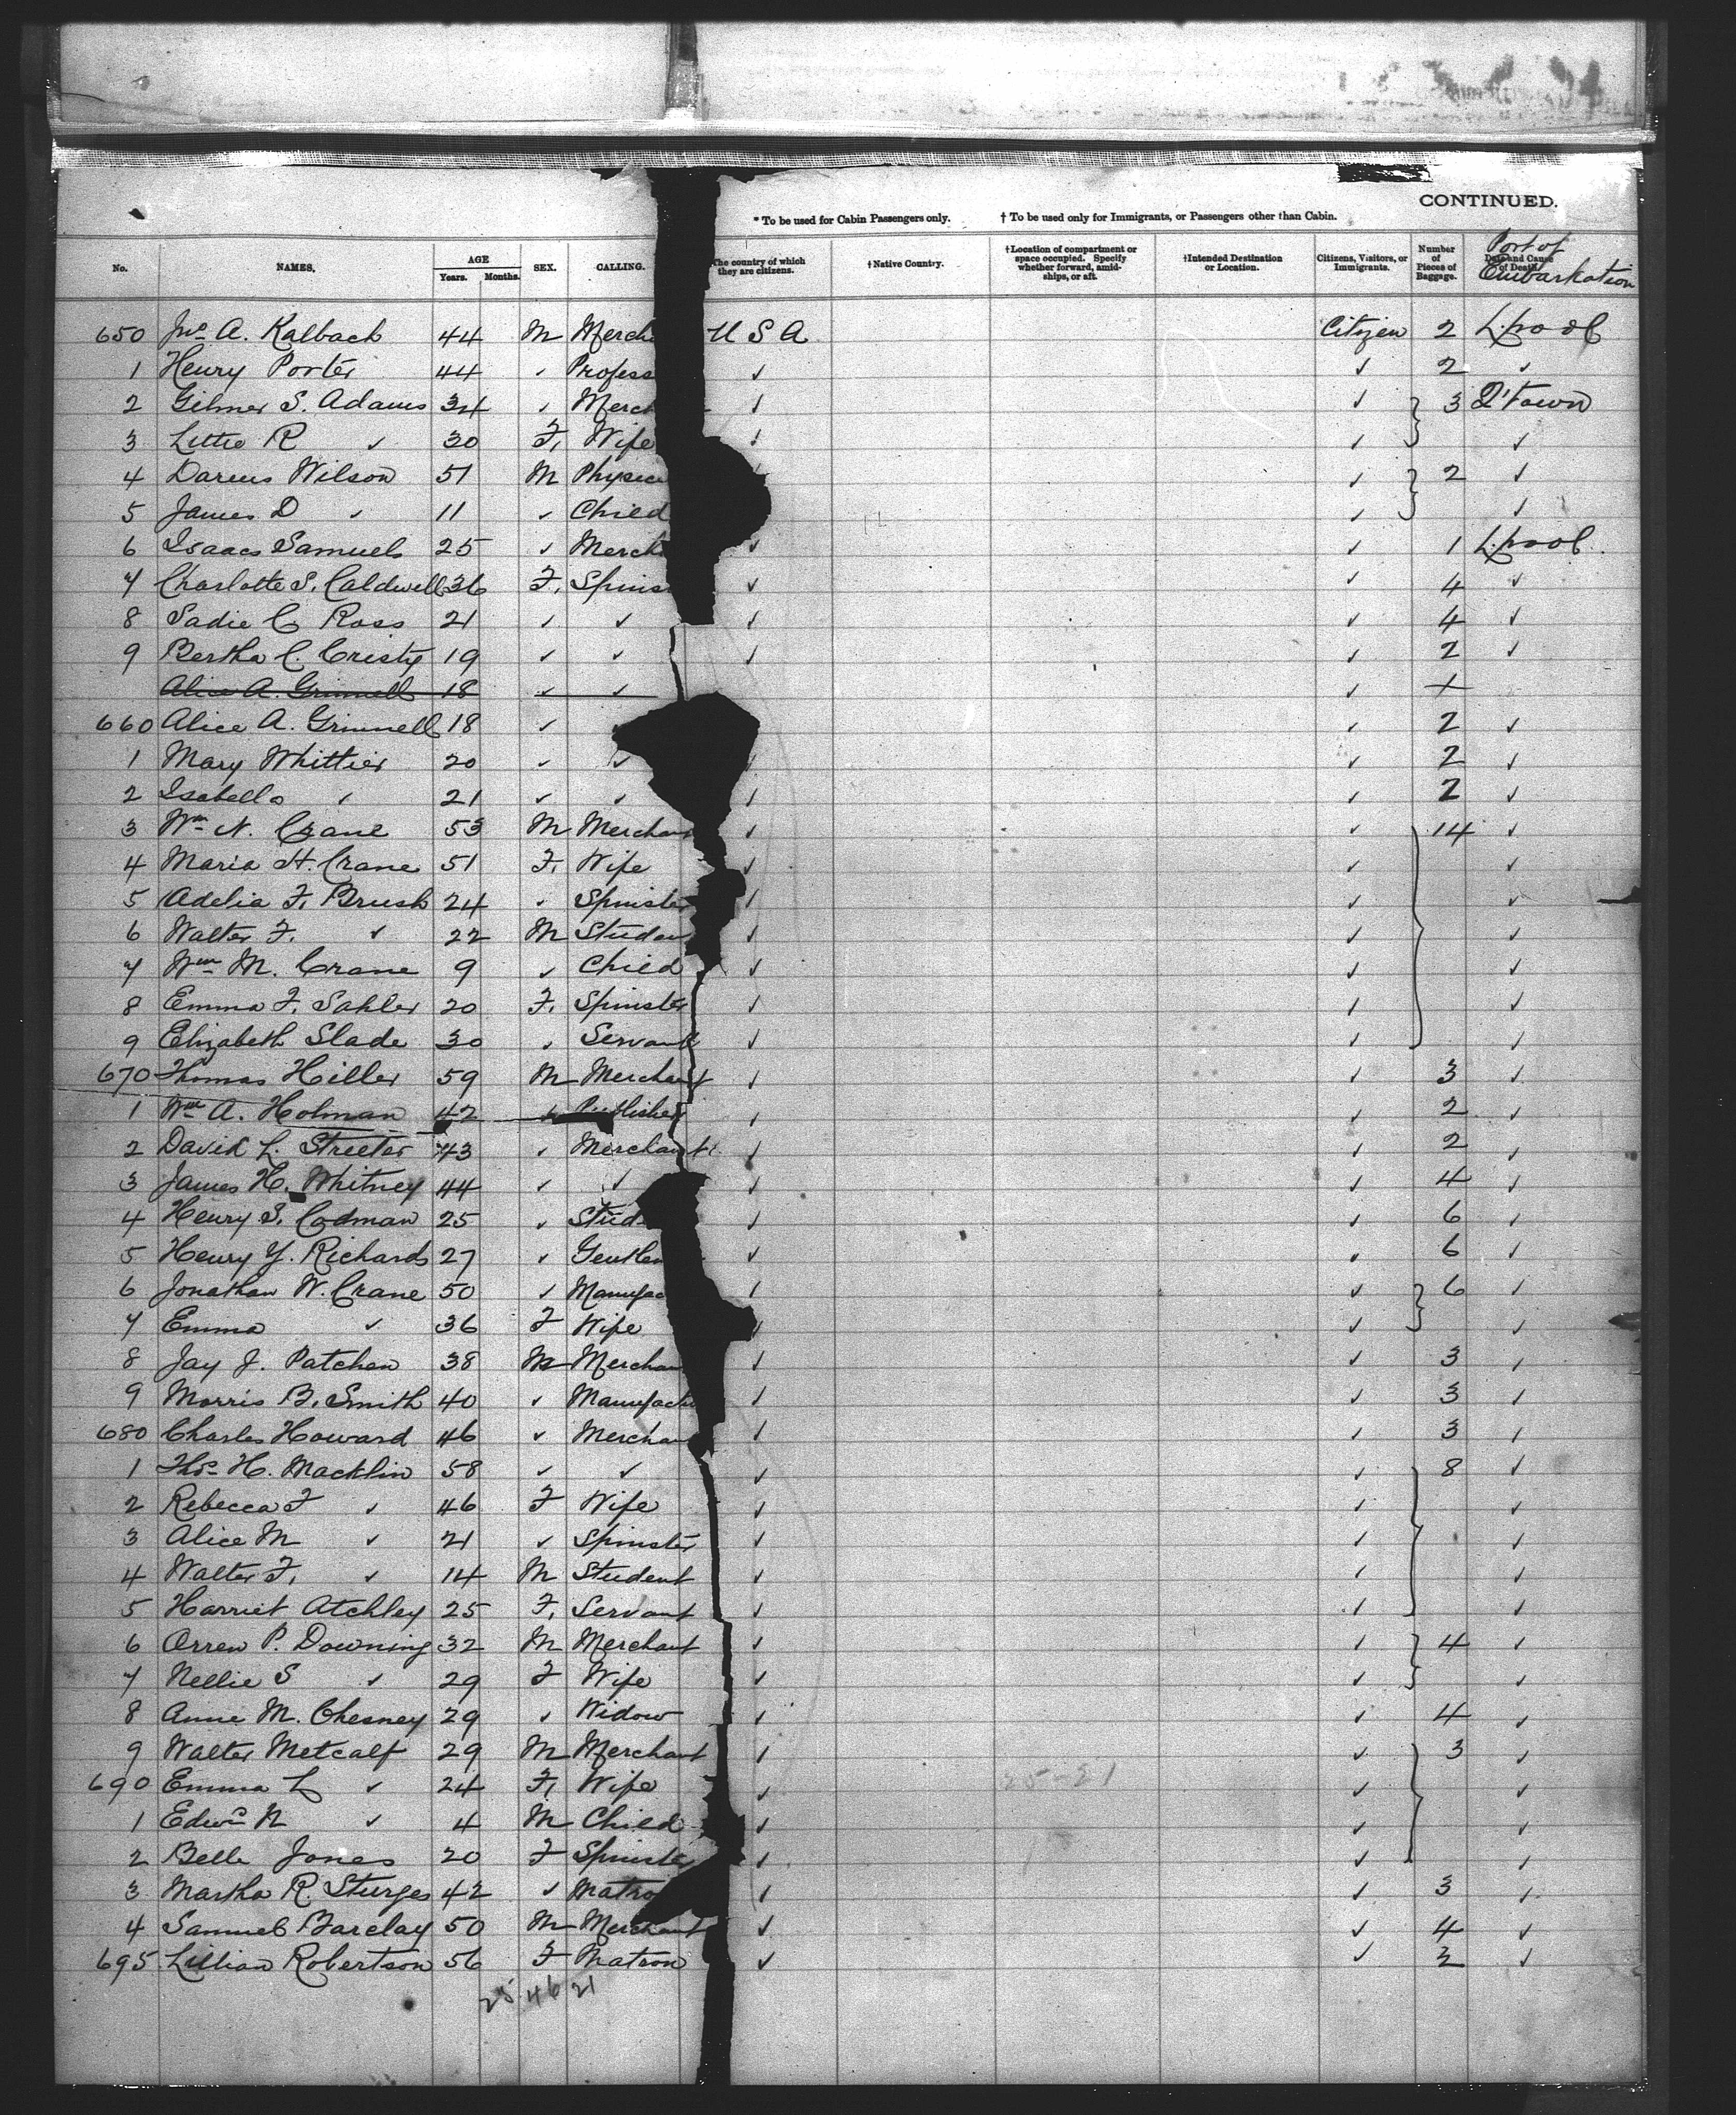 CONTINUED.
* To be used for Cabin Passengers only. † To be used only for Immigrants, or Passengers other than Cabin.
No. NAMES. AGE Years. Months. SEX. CALLING. The country of which they are citizens. †Native Country. †Location of compartment or space occupied. Specify whether forward, amidships, or aft. †Intended Destination or Location. Citizens, Visitors, or Immigrants. Number of Pieces of Baggage. Date and Cause of Death. Port of Embarkation
650 Jno A. Kalbach 44 M Merch U S A Citizen 2 L.pool
1 Henry Porter 44 ✓ Profess ✓ ✓ 2 ✓
2 Gilmer S. Adams 34 ✓ Merch ✓ ✓ 3 Q'town
3 Lettie R ✓ 30 F. Wife ✓ ✓ ✓
4 Darius Wilson 51 M Physici ✓ 2 ✓
5 James D ✓ 11 ✓ Child ✓ ✓
6 Isaacs Samuels 25 ✓ Merch ✓ ✓ 1 L.pool
7 Charlotte S. Caldwell 36 F. Spins ✓ ✓ 4 ✓
8 Sadie C Ross 21 ✓ ✓ ✓ ✓ 4 ✓
9 Bertha C. Cristy 19 ✓ ✓ ✓ ✓ 2 ✓
Alice A. Grinnell 18 ✓ ✓ ✓
660 Alice A. Grinnell 18 ✓ ✓ 2 ✓
1 Mary Whittier 20 ✓ ✓ ✓ ✓ 2 ✓
2 Isabella ✓ 21 ✓ ✓ ✓ ✓ 2 ✓
3 Wm N. Crane 53 M Merchan ✓ ✓ 14 ✓
4 Maria H. Crane 51 F. Wife ✓ ✓ ✓
5 Adelia F. Brush 24 ✓ Spinster ✓ ✓ ✓
6 Walter F. ✓ 22 M Studen ✓ ✓ ✓
7 Wm M. Crane 9 ✓ Child ✓ ✓ ✓
8 Emma F. Sahler 20 F. Spinster ✓ ✓ ✓
9 Elizabeth Slade 30 ✓ Servant ✓ ✓ ✓
670 Thomas Hiller 59 M Merchant ✓ ✓ 3 ✓
1 Wm A. Holman 42 ✓ Publisher ✓ ✓ 2 ✓
2 David L. Streeter 43 ✓ Merchant ✓ ✓ 2 ✓
3 James H. Whitney 44 ✓ ✓ ✓ ✓ 4 ✓
4 Henry S. Codman 25 ✓ Stud ✓ ✓ 6 ✓
5 Henry Y. Richards 27 ✓ Gentlem ✓ ✓ 6 ✓
6 Jonathan W. Crane 50 ✓ Manufac ✓ ✓ 6 ✓
7 Emma ✓ 36 F Wife ✓ ✓ ✓
8 Jay J. Patchen 38 M Merchan ✓ ✓ 3 ✓
9 Morris B. Smith 40 ✓ Manufactu ✓ ✓ 3 ✓
680 Charles Howard 46 ✓ Merchan ✓ ✓ 3 ✓
1 Thos H. Macklin 58 ✓ ✓ ✓ ✓ 8 ✓
2 Rebecca F ✓ 46 F Wife ✓ ✓ ✓
3 Alice M ✓ 21 ✓ Spinster ✓ ✓ ✓
4 Walter F. ✓ 14 M Student ✓ ✓ ✓
5 Harriet Atchley 25 F. Servant ✓ ✓ ✓
6 Orren P. Downing 32 M Merchant ✓ ✓ 4 ✓
7 Nellie S ✓ 29 F Wife ✓ ✓ ✓
8 Anne M. Chesney 29 ✓ Widow ✓ ✓ 4 ✓
9 Walter Metcalf 29 M Merchant ✓ ✓ 3 ✓
690 Emma L ✓ 24 F. Wife ✓ ✓ ✓
25-21
1 Edwd N ✓ 4 M Child ✓ ✓ ✓
2 Belle Jones 20 F Spinster ✓ ✓ ✓
3 Martha R. Sturges 42 ✓ Matro ✓ ✓ 3 ✓
4 Samuel Barclay 50 M Merchant ✓ ✓ 4 ✓
695 Lillian Robertson 56 F Matron ✓ ✓ 3 ✓
25 46 21